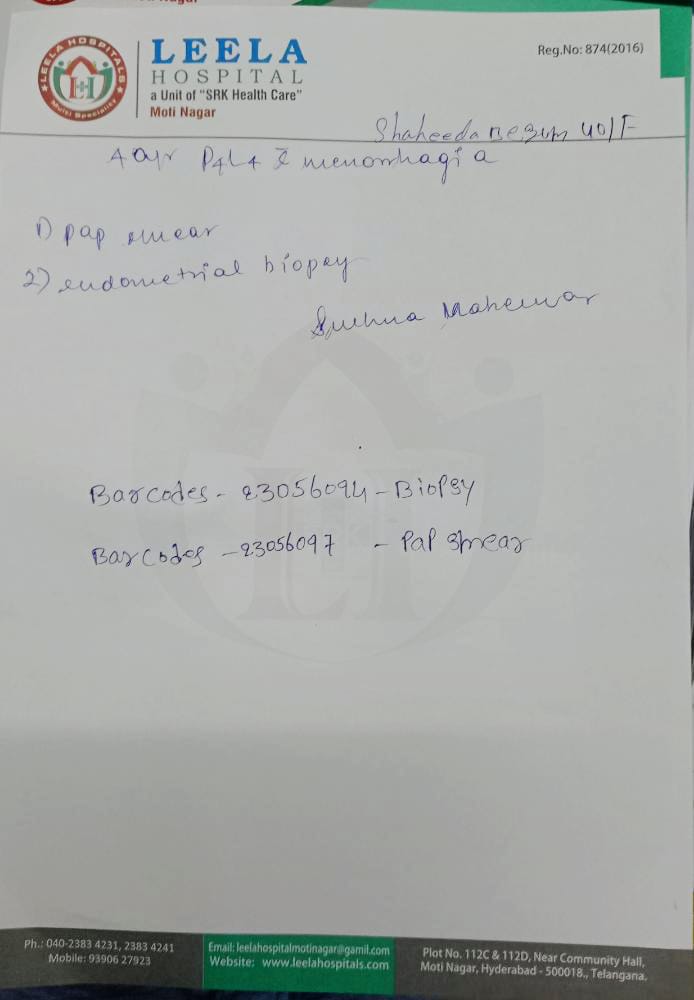 LEELA HOSPITALS
Multi Speciality
LEELA
HOSPITAL
a Unit of "SRK Health Care"
Moti Nagar
Reg.No: 874(2016)
Shaheeda Begum 40/F
40yr P4L4 c̄ menorrhagia
1) pap smear
2) endometrial biopsy
Barcodes - 23056094 - Biopsy
Barcodes - 23056097 - Pap smear
Ph.: 040-2383 4231, 2383 4241
Mobile: 93906 27923
Email: leelahospitalmotinagar@gamil.com
Website: www.leelahospitals.com
Plot No. 112C & 112D, Near Community Hall,
Moti Nagar, Hyderabad - 500018., Telangana.